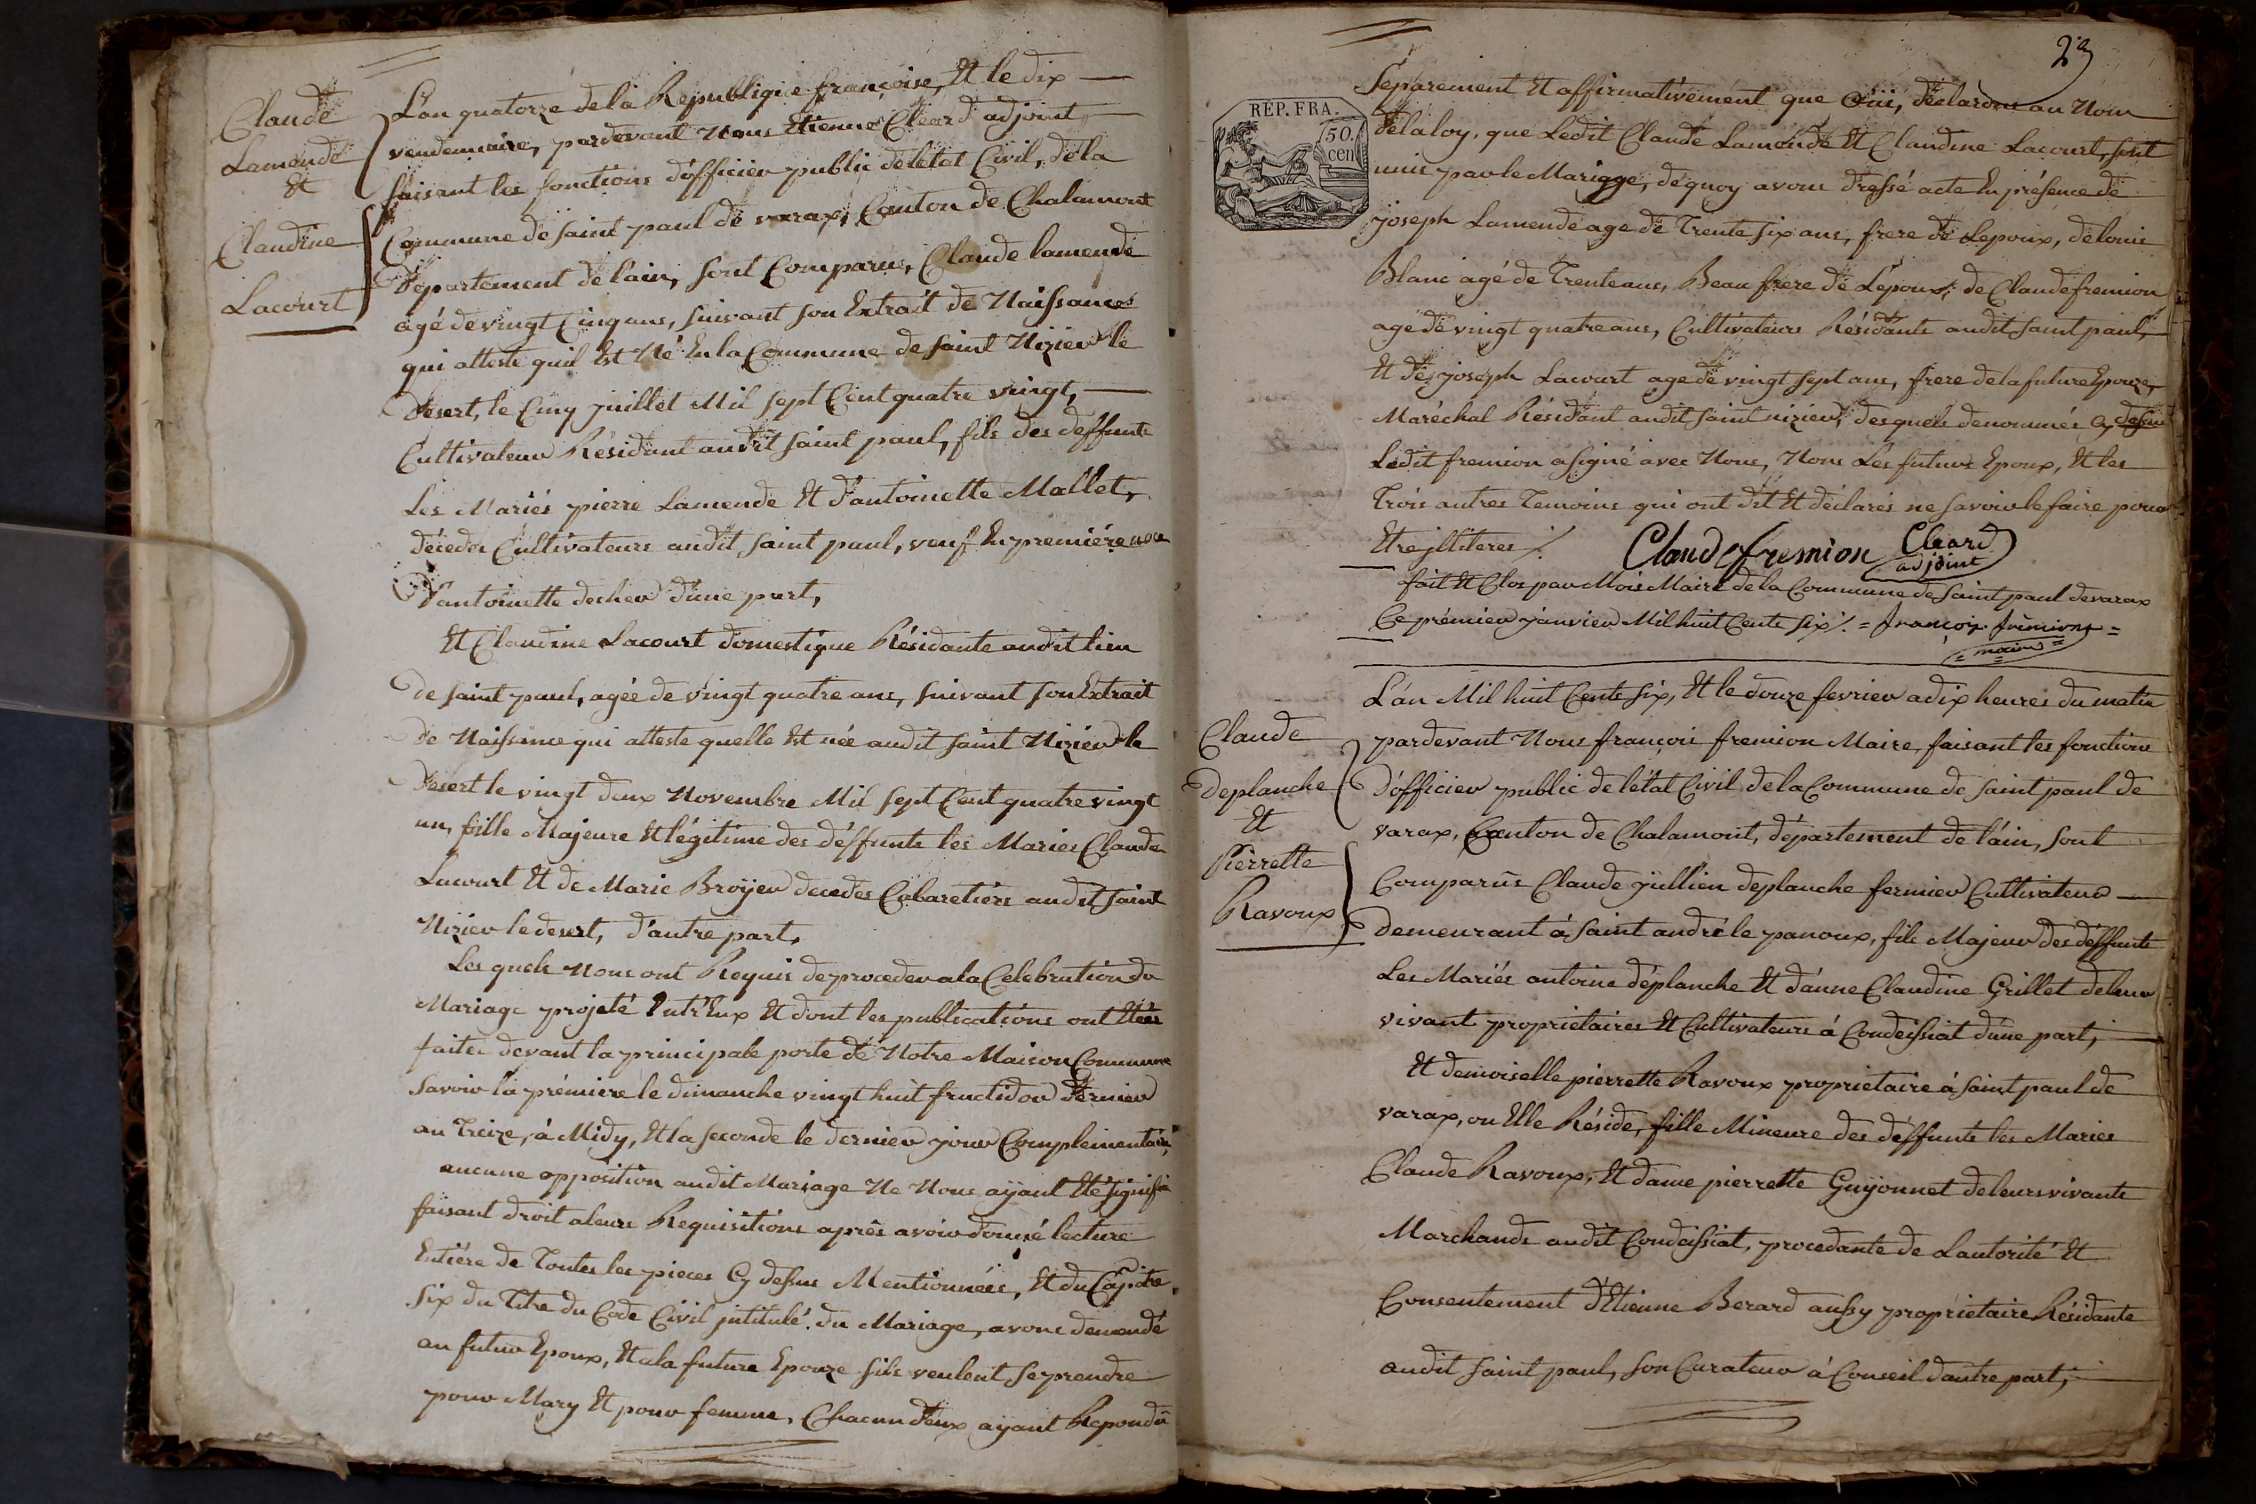 Claude
Lamende
Et
Claudine
Lacourt
L'an quatorze de la Republique françoise, Et le dix
vendemiaire, pardevant Nous Etienne Cleard adjoint,
faisant les fonctions d'officier public de l'état Civil, de la
Commune de saint paul de varax, Canton de Chalamont
Departement de l'ain, sont Comparus, Claude lamende
agé de vingt Cinq ans, suivant son Extrait de Naissance
qui atteste quil Est Né En la Commune de saint Nizier le
Desert, le Cinq juillet Mil sept Cent quatre vingt,
Cultivateur Résidant audit saint paul, fils des deffunts
Les Mariés pierre Lamende Et d'antoinette Mallet,
décedés Cultivateurs audit saint paul, veuf En premiére noce
D'antoinette decher d'une part,
Et Claudine Lacourt domestique Résidante audit lieu
de saint paul, agée de vingt quatre ans, suivant son Extrait
de Naissance qui atteste quelle Est née audit saint Nizier le
Desert le vingt deux Novembre Mil sept Cent quatre vingt
un, fille Majeure Et légitime des déffunts les Mariés Claude
Lacourt Et de Marie Broÿer decedés Cabaretiers audit saint
Nizier le desert, d'autre part,
Les quels Nous ont Requis de proceder a la Celebration du
Mariage projeté Entr'Eux Et dont les publications ont Etées
faites devant la principale porte de Notre Maison Commune
Savoir la prémiere le dimanche vingt huit fructidor dernier
an Treize, à Midy, Et la seconde le dernier jour Complementaire,
aucune opposition audit Mariage Ne Nous ayant Eté signifié
faisant droit a leurs Requisitions après avoir donné lecture
Entiére de Toutes les pieces Cy dessus Mentionnées, Et du Capitre
six du Titre du Code Civil jntitulé. du Mariage, avons demandé
au futur Epoux, Et a la future Epouze sils veulent se prendre
pour Mary Et pour femme, Chacun d'eux ayant Repondû
23
REP. FRA.
50.
cen
Séparement Et affirmativement que Oüi, déclarons au Nom
de la loy, que Ledit Claude Lamende Et Claudine Lacourt, sont
unis par le Mariage, de quoy avons dressé acte En présence de
joseph Lamende age de Trente six ans, frere de Lepoux, de louis
Blanc agé de Trente ans, Beau frere de Lepoux, de Claude fremion
agé de vingt quatre ans, Cultivateurs Résidants audit saint paul,
Et de joseph Lacourt age de vingt sept ans, frere de la future Epouze,
Maréchal Résidant audit saint nizier, desquels denommés Cy dessus
Ledit fremion a signé avec Nous, Nons Les futurs Epoux, Et les
Trois autres Temoins qui ont dit Et déclarés ne savoir le faire pour
Etre jlliteres ./.
Claude fremion Cleard
adjoint
fait Et Clos par Mois Maire de la Commune de saint paul de varax
Ce prémier janvier Mil huit Cents six ./. = françois frémion =
= maire =
Claude
Deplanche
Et
Pierrette
Ravoux
L'an Mil huit Cents six, Et le douze fevrier a dix heures du matin
pardevant Nous françois fremion Maire, faisant les fonctions
d'officier public de l'état Civil de la Commune de saint paul de
varax, Canton de Chalamont, département de l'ain, sont
Comparûs Claude jullien deplanche fermier Cultivateur
Demeurant à saint andré le panoux, fils Majeur des déffunts
Les Mariés antoine déplanche Et d'anne Claudine Grillet de leur
vivant proprietaires Et Cultivateurs à Condeissiat d'une part,
Et demoiselle pierrette Ravoux proprietaire à saint paul de
varax, ou Elle Réside, fille Mineure des déffunts les Mariés
Claude Ravoux, Et dame pierrette Guÿonnet de leurs vivants
Marchands audit Condeissiat, procedante de Lautorité Et
Consentement d'Etienne Berard aussy proprietaire Résidante
audit saint paul, son Curateur à Conseil d'autre part,